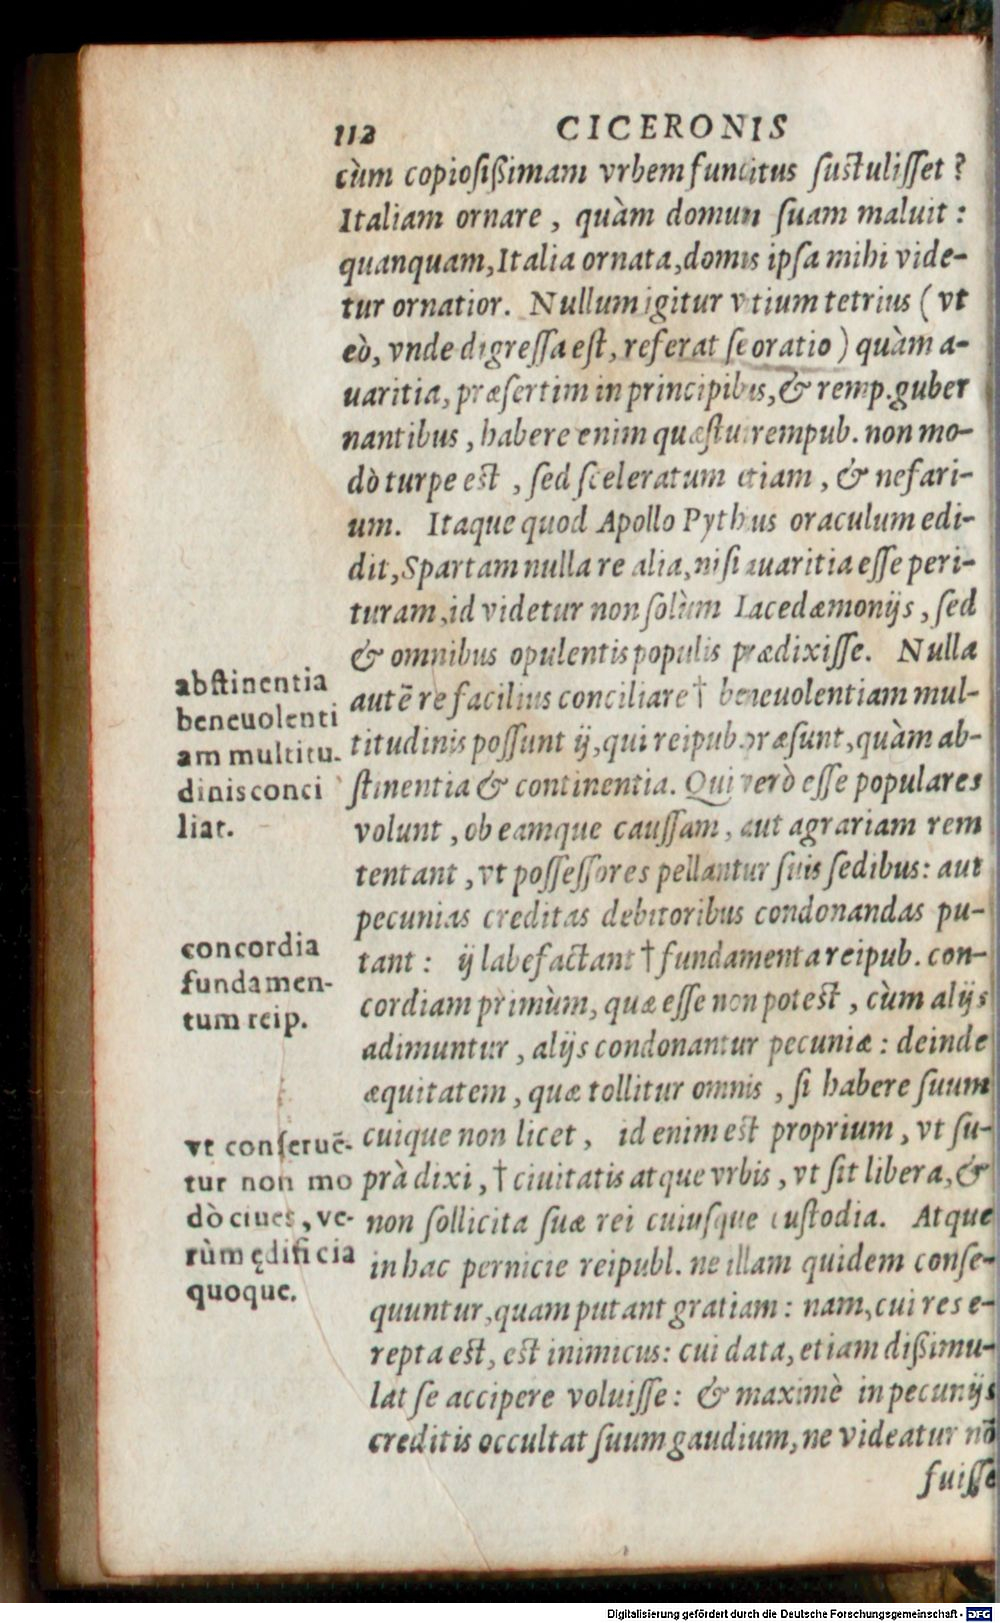 112 CICERONIS
cùm copiosißimam vrbem funditus sustulisset?
Italiam ornare, quàm domum suam maluit:
quanquam, Italia ornata, domus ipsa mihi vide-
tur ornatior. Nullum igitur vitium tetrius (vt
eò, vnde digressa est, referat se oratio) quàm a-
uaritia, præsertim in principibus, & remp. guber
nantibus, habere enim quæstui rempub. non mo-
dò turpe est, sed sceleratum etiam, & nefari-
um. Itaque quod Apollo Pythius oraculum edi-
dit, Spartam nulla re alia, nisi auaritia esse peri-
turam, id videtur non solùm Lacedæmonijs, sed
& omnibus opulentis populis prædixisse. Nulla
autē re facilius conciliare † beneuolentiam mul-
titudinis possunt ij, qui reipub. præsunt, quàm ab-
stinentia & continentia. Qui verò esse populares
volunt, ob eamque caussam, aut agrariam rem
tentant, vt possessores pellantur suis sedibus: aut
pecunias creditas debitoribus condonandas pu-
tant: ij labefactant † fundamenta reipub. con-
cordiam primùm, quæ esse non potest, cùm alijs
adimuntur, alijs condonantur pecuniæ: deinde
æquitatem, quæ tollitur omnis, si habere suum
cuique non licet, id enim est proprium, vt su-
prà dixi, † ciuitatis atque vrbis, vt sit libera, &
non sollicita suæ rei cuiusque custodia. Atque
in hac pernicie reipubl. ne illam quidem conse-
quuntur, quam putant gratiam: nam, cui res e-
repta est, est inimicus: cui data, etiam dißimu-
lat se accipere voluisse: & maximè in pecunijs
creditis occultat suum gaudium, ne videatur nō
fuisse
abstinentia
beneuolenti
am multitu-
dinis conci
liat.
concordia
fundamen-
tum reip.
vt conseruē-
tur non mo
dò ciues, ve-
rùm ędificia
quoque.
Digitalisierung gefördert durch die Deutsche Forschungsgemeinschaft - DFG